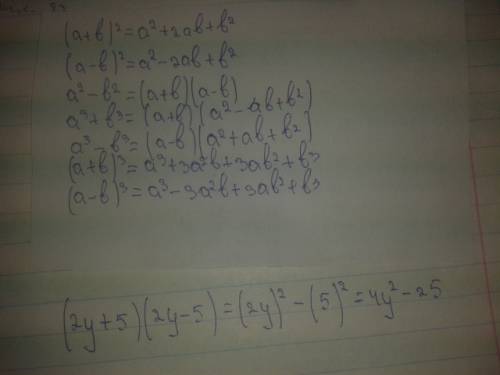 (a+b)²=a²+2ab+b²
(a-b)²=a²-2ab+b²
a²-b²=(a+b)(a-b)
a³+b³=(a+b)(a²-ab+b²)
a³-b³=(a-b)(a²+ab+b²)
(a+b)³=a³+3a²b+3ab²+b³
(a-b)³=a³-3a²b+3ab²+b³
(2y+5)(2y-5)=(2y)²-(5)²=4y²-25